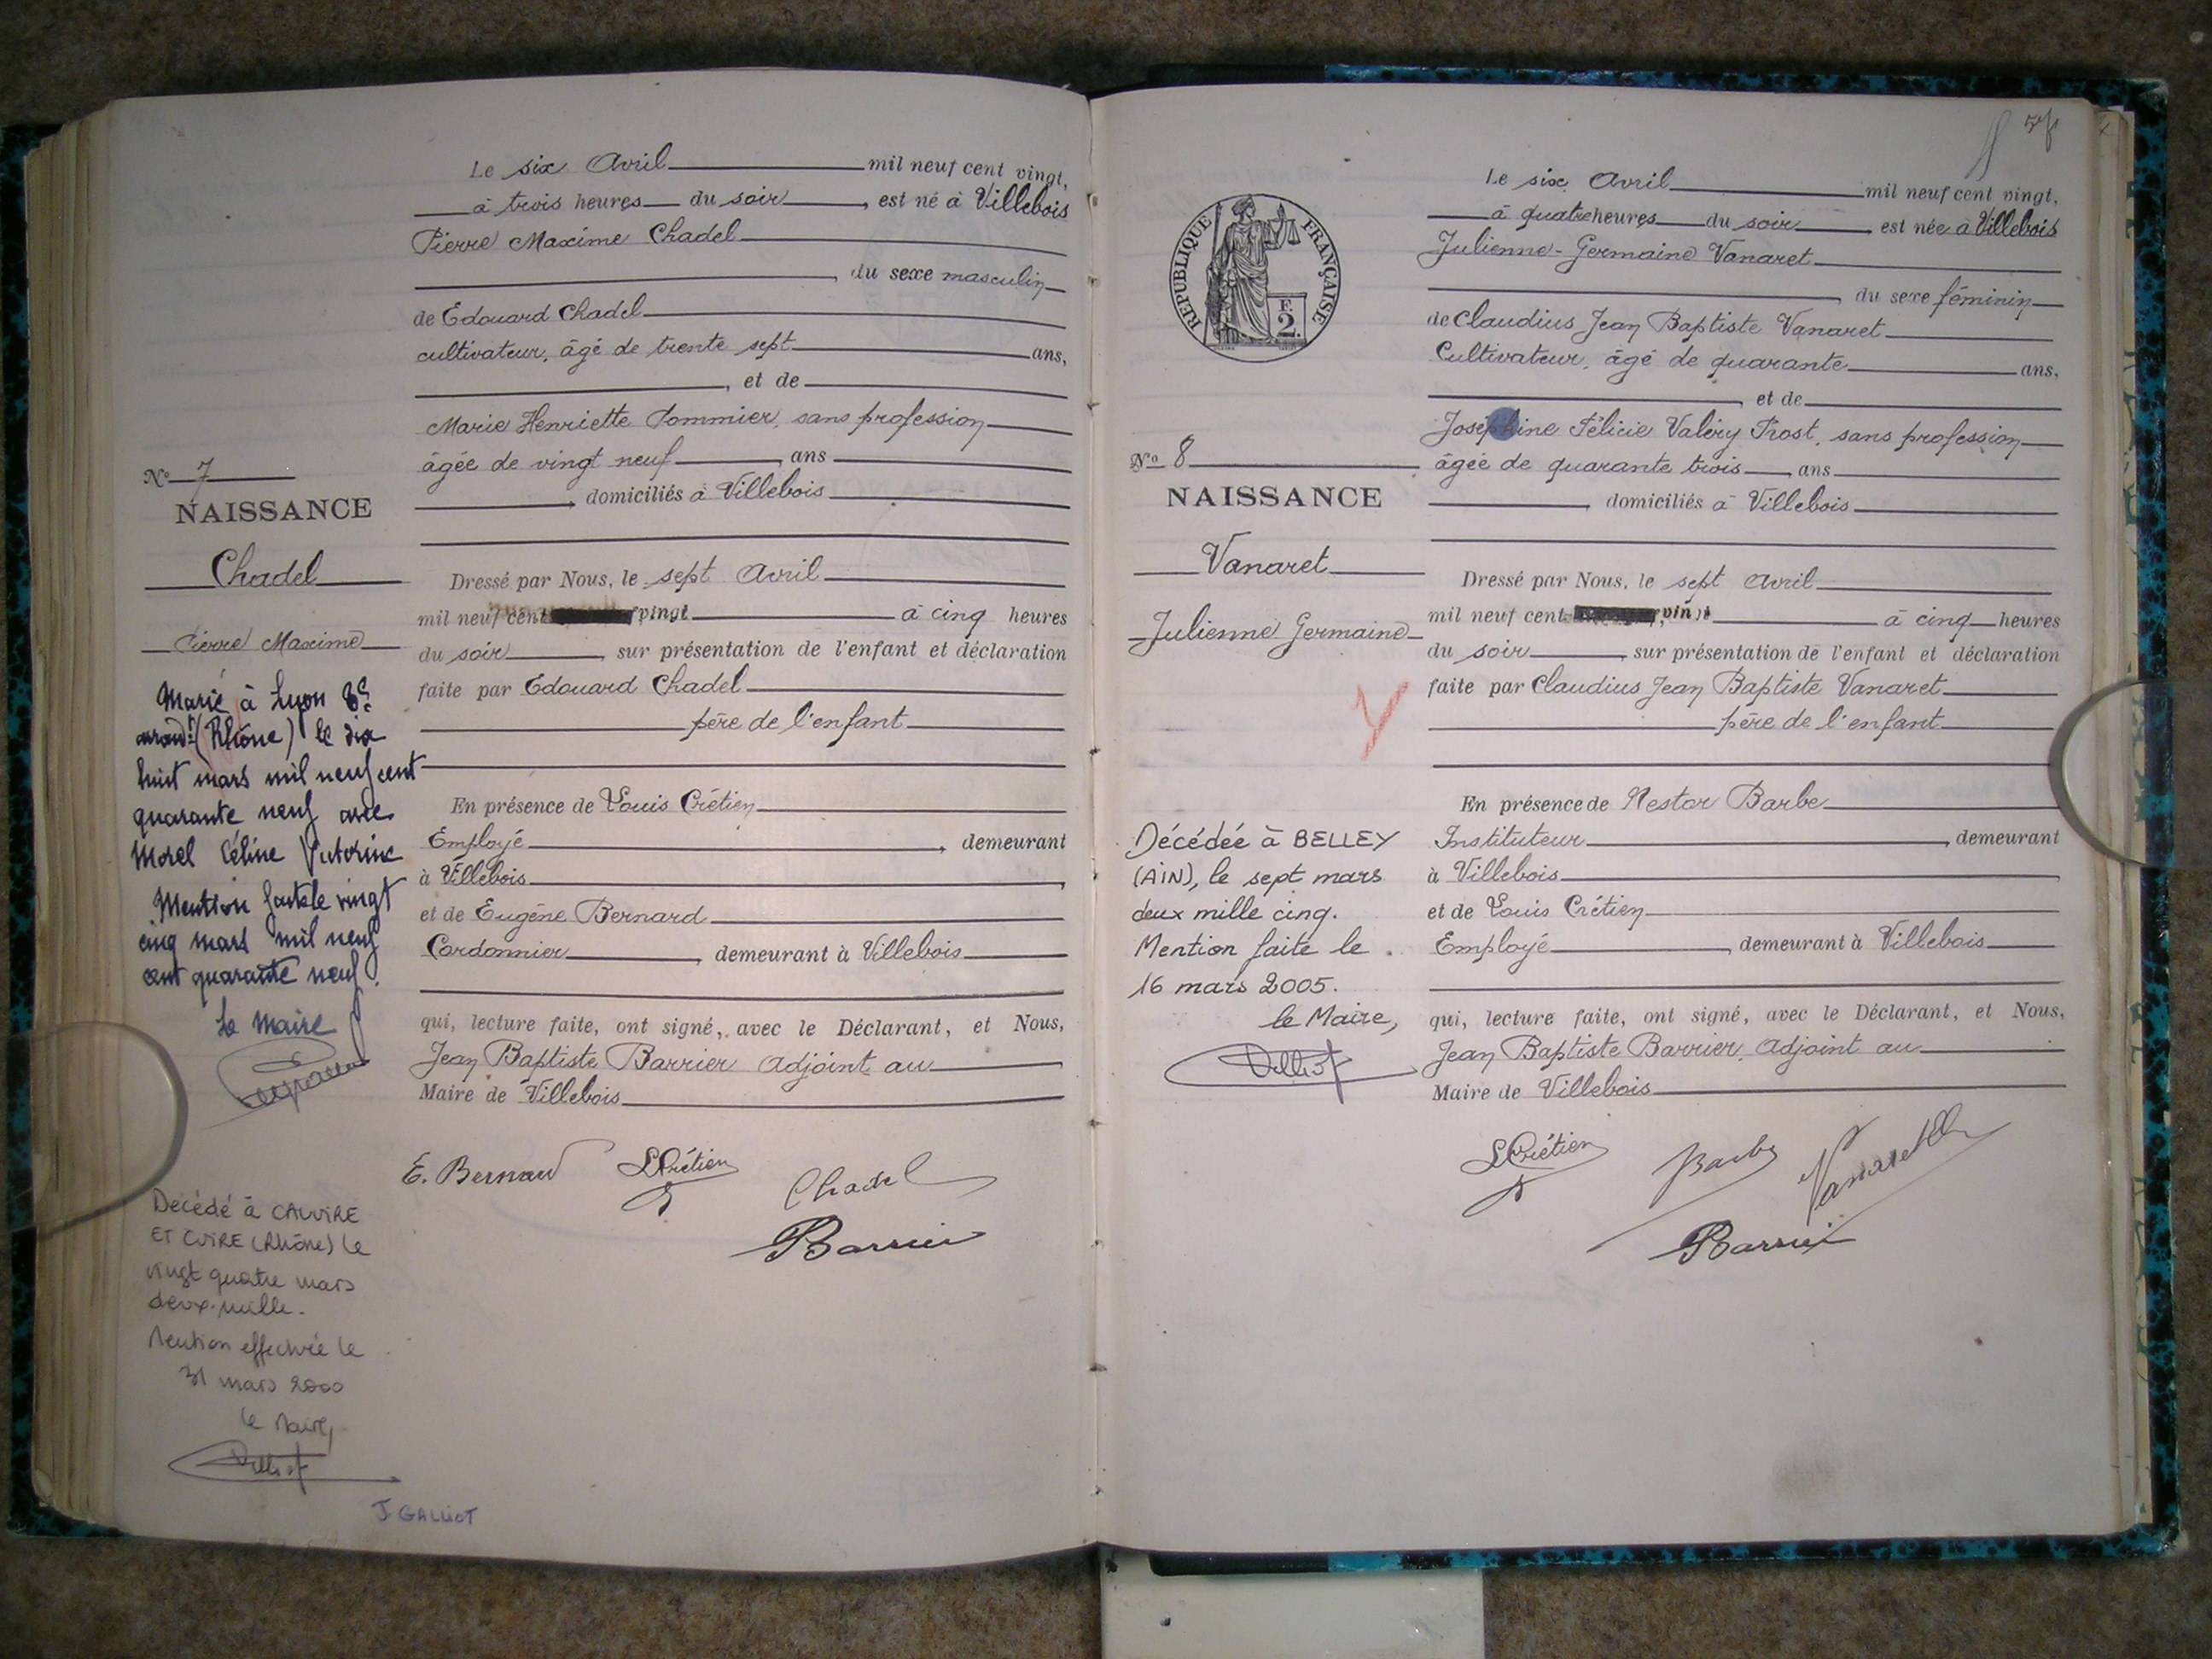 Le six Avril mil neuf cent vingt,
à trois heures du soir, est né à Villebois
Pierre Maxime Chadel
, du sexe masculin
de Edouard Chadel
cultivateur, âgé de trente sept ans,
, et de
Marie Henriette Pommier, sans profession
âgée de vingt neuf, ans
, domiciliés à Villebois
N° 7
NAISSANCE
Chadel
Pierre Maxime
Dressé par Nous, le sept Avril
mil neuf cent vingt à cinq heures
du soir, sur présentation de l'enfant et déclaration
faite par Edouard Chadel
père de l'enfant
En présence de Louis Crétien
Employé, demeurant
à Villebois,
et de Eugène Bernard
Cordonnier, demeurant à Villebois
qui, lecture faite, ont signé, avec le Déclarant, et Nous,
Jean Baptiste Barrier Adjoint au
Maire de Villebois
E. Bernard LCrétien Chadel
Barrier
Marié à Lyon 8e
arrondt (Rhône) le dix
huit mars mil neuf cent
quarante neuf avec
Morel Céline Victorine
Mention faite le vingt
cinq mars mil neuf
cent quarante neuf.
Le Maire
Décédé à CALUIRE
ET CUIRE (Rhône) le
vingt quatre mars
deux-mille.
Mention effectuée le
31 mars 2000
le Maire,
J GALLIOT
REPUBLIQUE FRANÇAISE
F.
2.
Le six Avril mil neuf cent vingt,
à quatre heures du soir, est née à Villebois
Julienne-Germaine Vanaret
, du sexe féminin
de Claudius Jean Baptiste Vanaret
Cultivateur, âgé de quarante ans,
, et de
Joséphine Félicie Valéry Trost, sans profession
âgée de quarante trois, ans
, domiciliés à Villebois
N° 8
NAISSANCE
Vanaret
Julienne Germaine
Dressé par Nous, le sept Avril
mil neuf cent vingt à cinq heures
du soir, sur présentation de l'enfant et déclaration
faite par Claudius Jean Baptiste Vanaret
père de l'enfant
En présence de Nestor Barbe
Instituteur, demeurant
à Villebois
et de Louis Crétien
Employé, demeurant à Villebois
qui, lecture faite, ont signé, avec le Déclarant, et Nous,
Jean Baptiste Barrier, Adjoint au
Maire de Villebois
LCrétien Barbe Vanaret
Barrier
Décédée à BELLEY
(AIN), le sept mars
deux mille cinq.
Mention faite le
16 mars 2005.
le Maire,